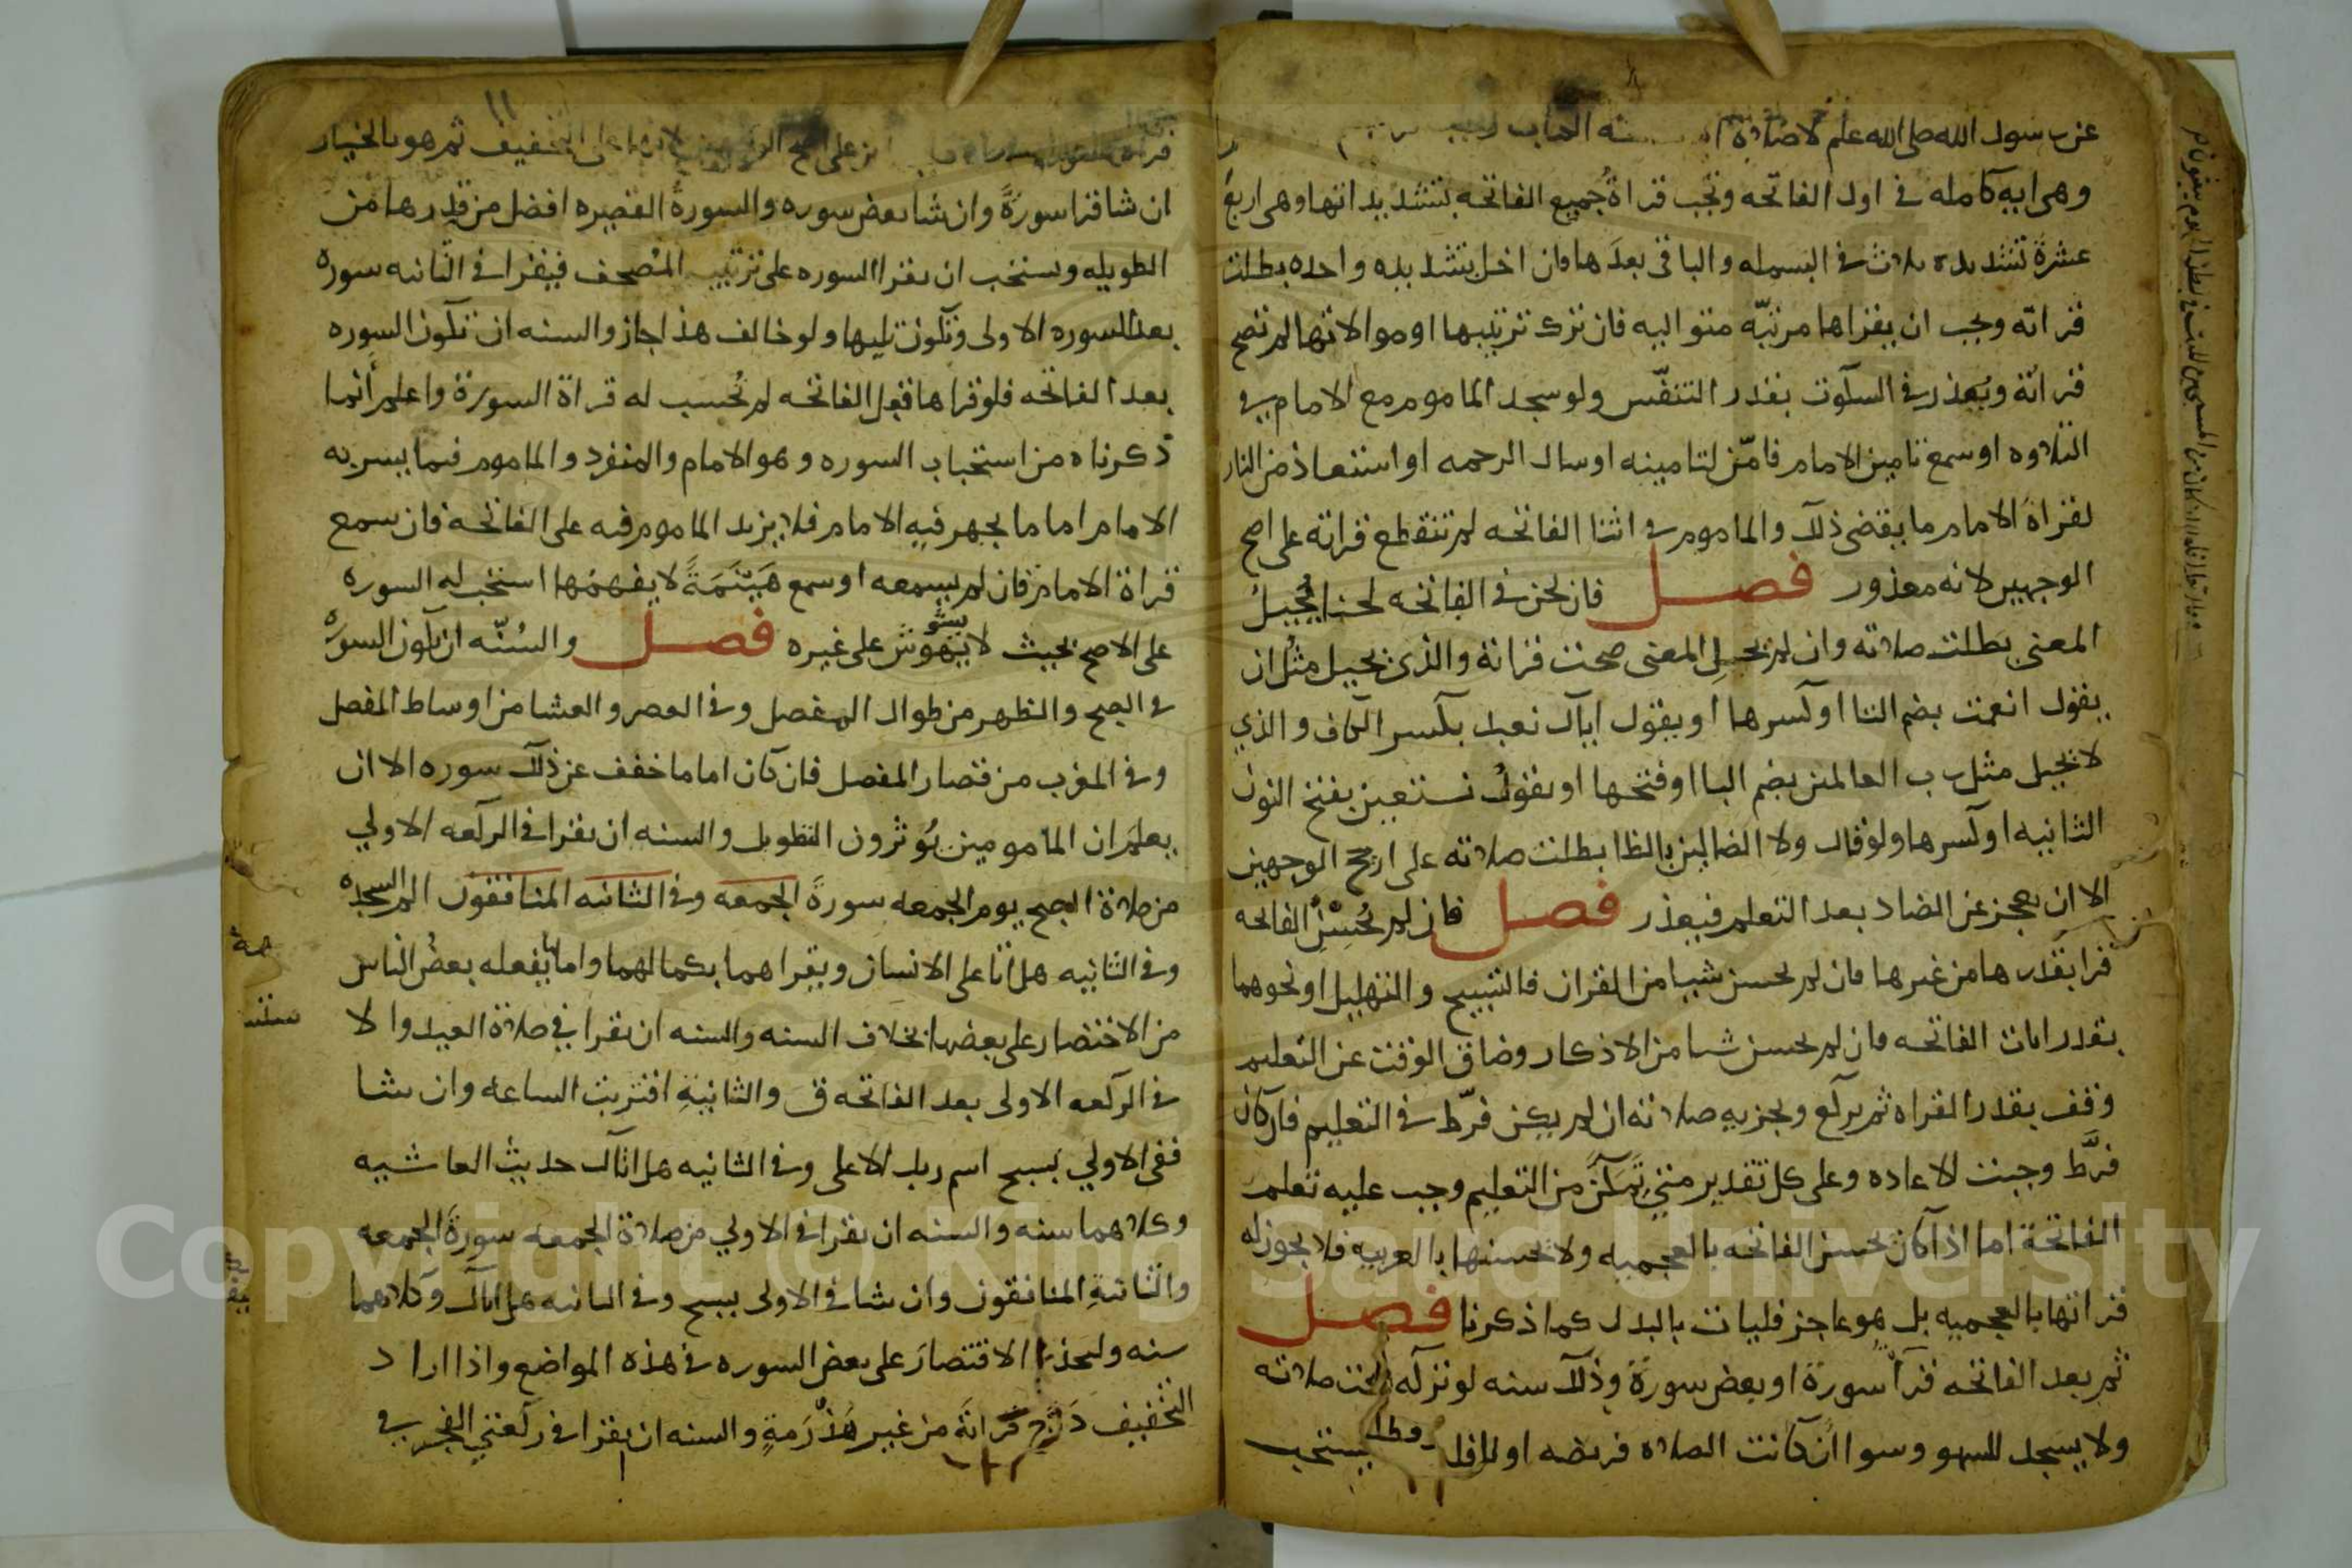 عن رسول الله صلى الله عليه لا صلاة
وهى ايه كامله فى اول الفاتحه وتجب قراةُ جميع الفاتحه بتشديداتها وهى اربعَ
عشرةَ تشديده ثلاث فى البسمله والباقى بعدَها فان اخل بتشديده واحده بطلت
قراته ويجب ان يقراها مرتبّه متواليه فان ترك ترتيبها او موالاتها لم تصح
قراته ويُعذر فى السكوت بقدر التنفّس ولو سجد الماموم مع الامام فى
التلاوه او سمع تامين الامام فامّن لتامينه او سال الرحمه او استعاذ من النار
لقراة الامام ما يقتضى ذلك والماموم فى اثنا الفاتحه لم تنقطع قراته على اصح
الوجهين لانه معذور فصل فان لحن فى الفاتحه لحنا يُحيلُ
المعنى بطلت صلاته وان لم يحل المعنى صحت قراته والذى يحيل مثلُ ان
يقول انعمت بضم التا او كسرها او يقول اياك نعبد بكسر الكاف والذي
لا يحيل مثل رب العالمين بضم البا او فتحها او يقولُ نستعين بفتح النون
الثانيه او كسرها ولو قال ولا الضالين بالظا بطلت صلاته على ارجح الوجهين
الا ان يعجز عن الضاد بعد التعلم فيعذر فصل فان لم يُحسِنْ الفاتحه
قرا بقدرها من غيرها فان لم يحسن شيا من القران فالتسبيح والتهليل او نحوهما
بقدر ايات الفاتحه فان لم يحسن شيا من الاذكار وضاق الوقت عن التعليم
وقف بقدر القراه ثم يركع ويجزيه صلاته ان لم يكن فرّط فى التعليم فان كان
فرَّط وجبت الاعاده وعلى كل تقدير متي تمكَّن من التعليم وجب عليه تعلم
الفاتحة اما اذا كان يحسن الفاتحه بالعجميه ولا يحسنها بالعربيه فلا يجوز له
قراتها بالعجميه بل هو عاجز فليات بالبدل كما ذكرنا فصل
ثم بعد الفاتحه قرأ سورة او بعض سورة وذلك سنه لو تركه صحت صلاته
ولا يسجد للسهو وسوا ان كانت الصلاه فريضه او نافله ولا يستحب
١١
على اصح التخفيف ثم هو بالخيار
ان شا قرا سورةً وان شا بعض سوره والسورةُ القصيره افضل من قدرها من
الطويله ويستحب ان يقرا السوره على ترتيب المُصحف فيقرا فى الثانيه سوره
بعد السوره الاولى وتكون تليها ولو خالف هذا جاز والسنه ان تكون السوره
بعد الفاتحه فلو قراها قبل الفاتحه لم تُحسب له قراة السورة واعلم أنما
ذكرناه من استحباب السوره وهو الامام والمنفرد والماموم فيما يسر به
الامام اما ما يجهر فيه الامام فلا يزيد الماموم فيه على الفاتحه فان سمع
قراة الامام فان لم يسمعه او سمع هَيْنَمَةً لا يفهمُها استحب له السوره
على الاصح بحيث لا يشوش على غيره فصل والسُنّه ان تكون السوره
فى الصبح والظهر من طوال المفصل وفى العصر والعشا من اوساط المفصل
وفى المغرب من قصار المفصل فان كان اماما خفف عن ذلك سوره الا ان
يعلم ان المامومين يُوثرون التطويل والسنه ان يقرا فى الركعه الاولي
من صلاة الصبح يوم الجمعه سورةَ الجمعه وفى الثانيه المنافقون الم السجده
وفى الثانيه هل اتا على الانسان ويقراهما بكمالهما واما ما يفعله بعضُ الناس
من الاختصار على بعضها بخلاف السنه والسنه ان يقرا في صلاة العيد والا
فى الركعه الاولى بعد الفاتحه ق والثانيةِ اقتربت الساعه وان شا
ففى الاولي بسبح اسم ربك الاعلى وفى الثانيه هل اتاك حديث الغاشيه
وكلاهما سنه والسنه ان يقرا فى الاولي من صلاة الجمعه سورةَ الجمعه
والثانيةِ المنافقون وان شا فى الاولى بسبح وفى الثانيه هل اتاك وكلاهما
سنه وليحذر الاقتصارَ على بعض السوره فى هذه المواضع واذا اراد
التخفيف دَرَّج قراتَه من غير هَذْرَمةٍ والسنه ان يقرا فى ركعتي الفجر فى
Copyright © King Saud University